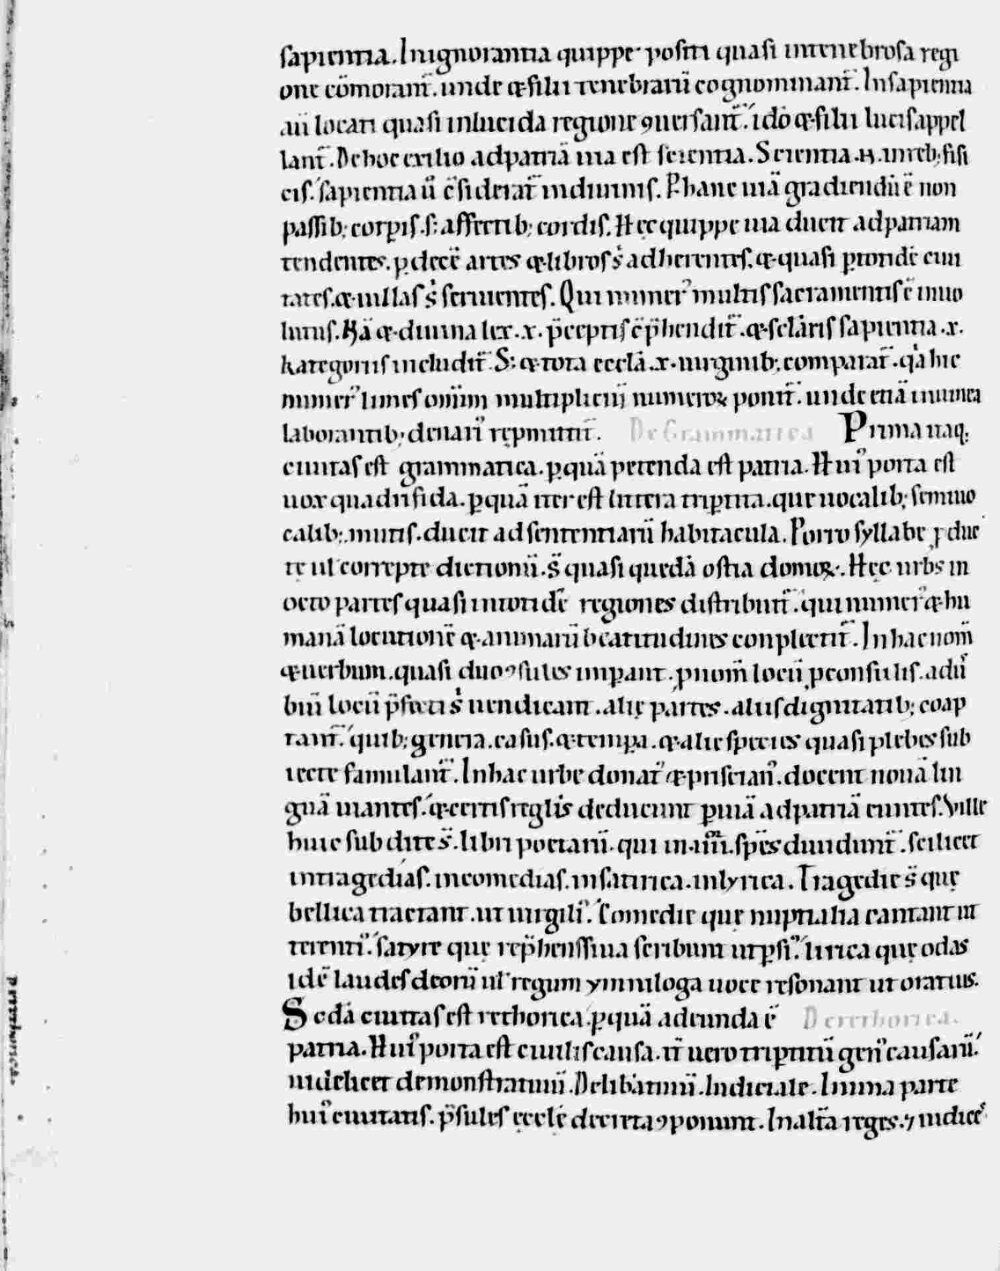 sapientia. In ignorantia quippe positi quasi in tenebrosa regi
one cōmorant̄. unde & filii tenebrarū cognominant̄. In sapientia
aū locati quasi in lucida regione ꝯuersant̄. idō & filii lucis appel
lant̄. De hoc exilio ad patriā uia est scientia. Scientia .n. in reb; fisi
cis. sapientia ū c̄siderat̄ in diuinis. P hanc uiā gradiendū ē non
passib; corꝑis. s; affectib; cordis. Hęc quippe uia ducit ad patriam
tendentes. ꝑ decē artes & libros s̓ adherentes. & quasi ꝑ totidē ciui
tates. & uillas s̓ seruientes. Qui numer᾿ multis sacramentis ē inuo
lutus. Nā & diuina lex .x. p̄ceptis c̄p̄hendit̄. & sc̄laris sapientia .x.
kategoriis includit̄. S; & tota eccl̄a .x. uirginib; comparat̄. q̓a hic
numer᾿ limes om̄ium multipliciū numeroꝝ ponit̄. unde etiā in uinea
laborantib; denari᾿ repmittit̄. De Grammatica Prima itaq;
ciuitas est grammatica. ꝑ quā petenda est patria. Hui᾿ porta est
uox quadrifida. ꝑ quā iter est littera tripertita. que uocalib; semiuo
calib; mutis. ducit ad sententiarū habitacula. Porro syllabe ꝓduc
tę uł correptę dictionū. s̄ quasi quedā ostia domoꝝ. Hęc urbs in
octo partes quasi in totidē regiones distribuit̄. qui numer᾿ & hu
manā locutionē & animarū beatitudines conplectit̄. In hac nom̄
& uerbum. quasi duo ꝯsules imꝑant. ꝓnom̄ locū ꝓconsulis. adū
biū locū p̄fecti s̓ uendicant. alię partes. aliis dignitatib; coap
tant̄. quib; genera. casus. & tempa. & alie species quasi plebes sub
iecte famulant̄. In hac urbe donat᾿ & priscian᾿. docent nouā lin
guā uiantes. & certis reglis deducunt ꝑ uiā ad patriā euntes. Ville
huic subdite s̄. libri poetarū. qui in .iiii. spēs diuidunt̄. scilicet
in tragedias. in comedias. in satirica. in lyrica. Tragedie s̄ quę
bellica tractant. ut uirgili᾿. Comedie quę nuptialia cantant ut
terenti᾿. satyre quę rep̄hensiua scribunt ut ꝑsi᾿. lirica quę odas
idē laudes deorū uł regum ymniloga uoce resonant ut oratius.
Scdā ciuitas est rethorica. ꝑ quā adeunda ē De rethorica.
patria. Hui᾿ porta est ciuilis causa. it̄ uero tripertitū gen᾿ causarū.
uidelicet demonstratiuū. Delib̄atiuū. Iudiciale. In una parte
hui᾿ ciuitatis. p̄sules ęcclę decreta ꝯponunt. In altā reges. ⁊ iudices